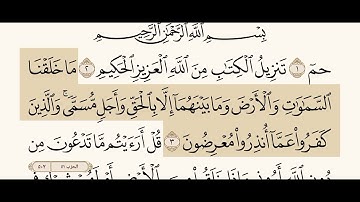 بِسْمِ اللَّهِ الرَّحْمَٰنِ الرَّحِيمِ
حمٓ ١ تَنزِيلُ الْكِتَابِ مِنَ اللَّهِ الْعَزِيزِ الْحَكِيمِ ٢ مَا خَلَقْنَا
السَّمَاوَاتِ وَالْأَرْضَ وَمَا بَيْنَهُمَا إِلَّا بِالْحَقِّ وَأَجَلٍ مُّسَمًّى ۚ وَالَّذِينَ
كَفَرُوا عَمَّا أُنذِرُوا مُعْرِضُونَ ٣ قُلْ أَرَأَيْتُم مَّا تَدْعُونَ مِن
الحزب ٥١ ٥٠٢